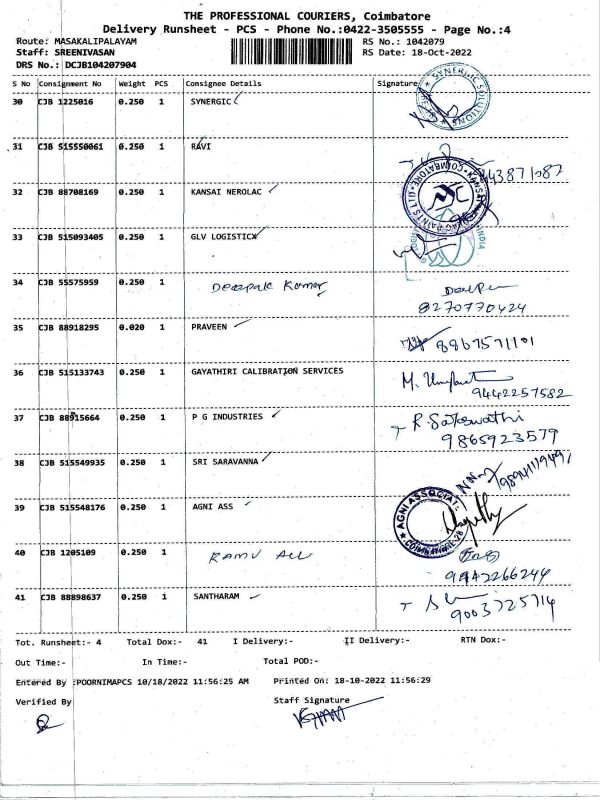 THE PROFESSIONAL COURIERS, Coimbatore
Delivery Runsheet - PCS - Phone No.:0422-3505555 - Page No.:4
Route: MASAKALIPALAYAM RS No.: 1042079
Staff: SREENIVASAN RS Date: 18-Oct-2022
DRS No.: DCJB104207904
S No Consignment No Weight PCS Consignee Details Signature
30 CJB 1225016 0.250 1 SYNERGIC
SYNERGIC SOLUTIONS
31 CJB 515550061 0.250 1 RAVI
32 CJB 88708169 0.250 1 KANSAI NEROLAC
33 CJB 515093405 0.250 1 GLV LOGISTICX
34 CJB 55575959 0.250 1 Deepak Kumar
8270770424
35 CJB 88918295 0.020 1 PRAVEEN 8867571101
36 CJB 515133743 0.250 1 GAYATHIRI CALIBRATION SERVICES
9442257582
37 CJB 88915664 0.250 1 P G INDUSTRIES R. Saraswathi
9865923579
38 CJB 515549935 0.250 1 SRI SARAVANNA
39 CJB 515548176 0.250 1 AGNI ASS
AGNI ASSOCIAT
40 CJB 1205109 0.250 1 RAMU ALL
41 CJB 88898637 0.250 1 SANTHARAM
9003725714
Tot. Runsheet:- 4 Total Dox:- 41 I Delivery:- II Delivery:- RTN Dox:-
Out Time:- In Time:- Total POD:-
Entered By :POORNIMAPCS 10/18/2022 11:56:25 AM Printed On: 18-10-2022 11:56:29
Verified By Staff Signature